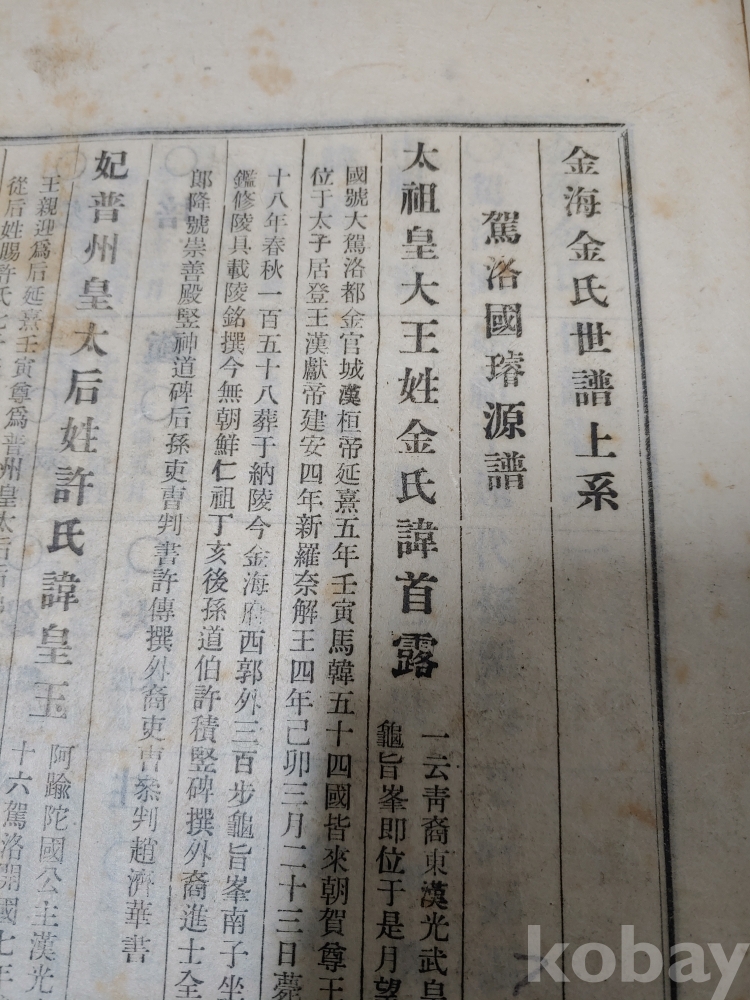 金海金氏世譜上系
駕洛國璿源譜
太祖皇大王姓金氏諱首露
一云靑裔東漢光武皇
龜旨峯即位于是月望
國號大駕洛都金官城漢桓帝延熹五年壬寅馬韓五十四國皆來朝賀尊王
位于太子居登王漢獻帝建安四年新羅奈解王四年己卯三月二十三日薨
十八年春秋一百五十八葬于納陵今金海府西郭外三百步龜旨峯南子坐
鑑修陵具載陵銘撰今無朝鮮仁祖丁亥後孫道伯許積竪碑撰外裔進士全
郎降號崇善殿竪神道碑后孫吏曺判書許傳撰外裔吏曺叅判趙濟華書
妃普州皇太后姓許氏諱皇玉
阿踰陀國公主漢光
十六駕洛開國七年
王親迎爲后延熹壬寅尊爲普州皇太后
從后姓賜許氏七
kobay